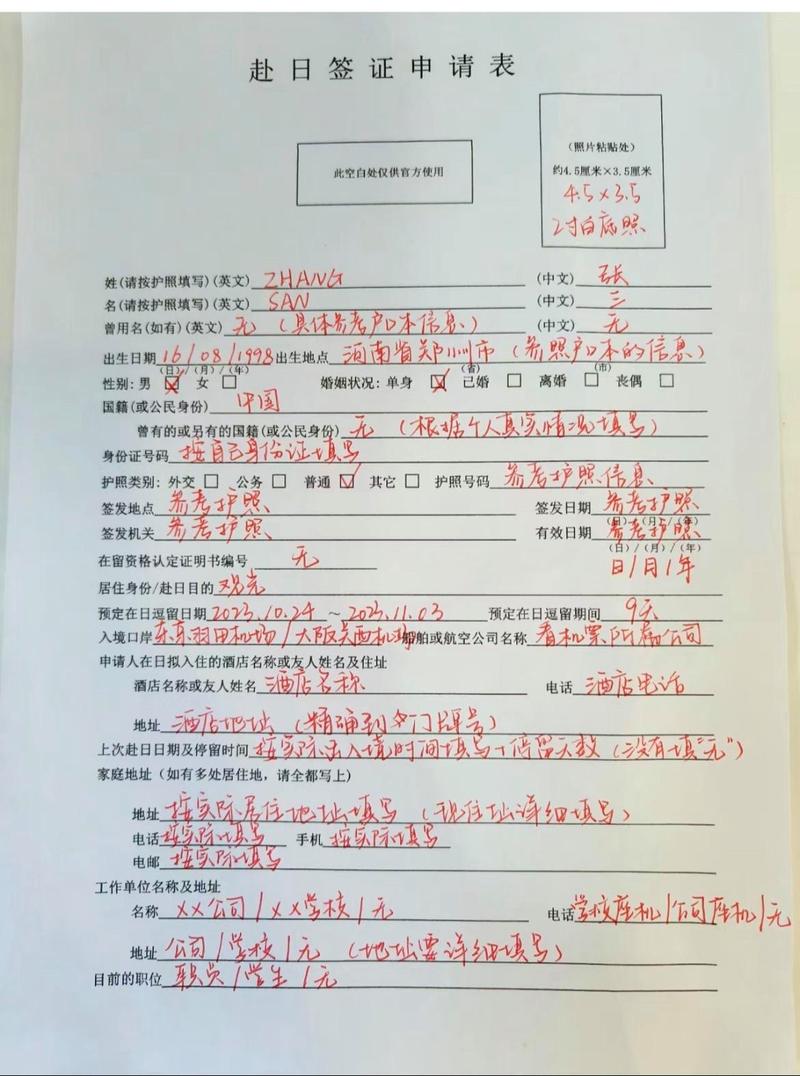 赴日签证申请表
此空白处仅供官方使用
(照片粘贴处)
约4.5厘米×3.5厘米
4.5×3.5
2寸白底照
姓(请按护照填写)(英文) ZHANG (中文) 张
名(请按护照填写)(英文) SAN (中文) 三
曾用名(如有)(英文) 无 (具体参考户口本信息) (中文) 无
出生日期 16/08/1998 出生地点 河南省郑州市 (参照户口本的信息)
(日)/(月)/(年) (省) (市)
性别: 男 ☒ 女 □ 婚姻状况: 单身 ☑ 已婚 □ 离婚 □ 丧偶 □
国籍(或公民身份) 中国
曾有的或另有的国籍(或公民身份) 无 (根据个人真实情况填写)
身份证号码 按自己身份证填写
护照类别: 外交 □ 公务 □ 普通 ☑ 其它 □ 护照号码 参考护照信息
签发地点 参考护照 签发日期 参考护照
(日)/(月)/(年)
签发机关 参考护照 有效日期 参考护照
(日)/(月)/(年)
在留资格认定证明书编号 无 日/月/年
居住身份/赴日目的 观光
预定在日逗留日期 2023.10.24 ~ 2023.11.03 预定在日逗留期间 9天
入境口岸 东京羽田机场/大阪关西机场 船舶或航空公司名称 看机票所属公司
申请人在日拟入住的酒店名称或友人姓名及住址
酒店名称或友人姓名 酒店名称 电话 酒店电话
地址 酒店地址 (精确到门牌号)
上次赴日日期及停留时间 按实际出入境时间填写+停留天数 (没有填"无")
家庭地址(如有多处居住地,请全都写上)
地址 按实际居住地址填写 (现住址详细填写)
电话 按实际填写 手机 按实际填写
电邮 按实际填写
工作单位名称及地址
名称 XX公司/XX学校/无 电话 学校座机/公司座机/无
地址 公司/学校/无 (地址要详细填写)
目前的职位 职员/学生/无